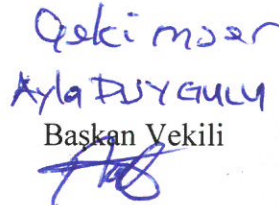 Çekimser
Ayla DUYGULU
Başkan Vekili